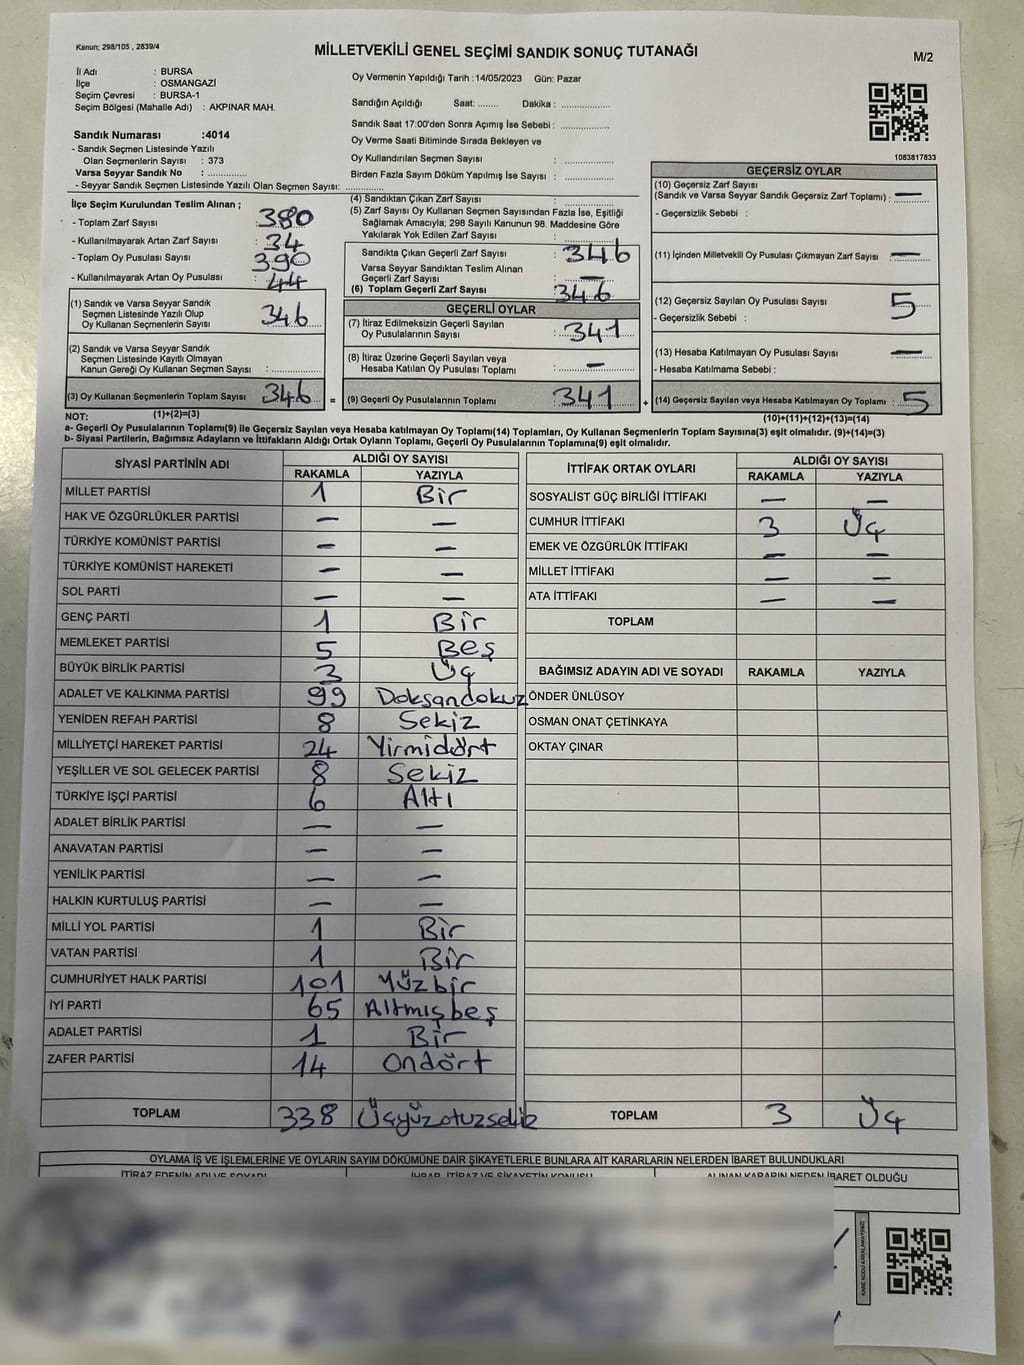 Kanun; 298/105 , 2839/4
MİLLETVEKİLİ GENEL SEÇİMİ SANDIK SONUÇ TUTANAĞI
M/2
İl Adı : BURSA
İlçe : OSMANGAZİ
Seçim Çevresi : BURSA-1
Seçim Bölgesi (Mahalle Adı) : AKPINAR MAH.
Oy Vermenin Yapıldığı Tarih : 14/05/2023 Gün: Pazar
Sandığın Açıldığı Saat: ........ Dakika : ...............
Sandık Saat 17:00'den Sonra Açımış İse Sebebi : ...............
Oy Verme Saati Bitiminde Sırada Bekleyen ve
Oy Kullandırılan Seçmen Sayısı : ...............
Birden Fazla Sayım Döküm Yapılmış İse Sayısı : ...............
1083817833
Sandık Numarası :4014
- Sandık Seçmen Listesinde Yazılı
Olan Seçmenlerin Sayısı : 373
Varsa Seyyar Sandık No : ...............
- Seyyar Sandık Seçmen Listesinde Yazılı Olan Seçmen Sayısı: ...............
İlçe Seçim Kurulundan Teslim Alınan ;
- Toplam Zarf Sayısı : 380
- Kullanılmayarak Artan Zarf Sayısı : 34
- Toplam Oy Pusulası Sayısı : 390
- Kullanılmayarak Artan Oy Pusulası : 44
(1) Sandık ve Varsa Seyyar Sandık
Seçmen Listesinde Yazılı Olup
Oy Kullanan Seçmenlerin Sayısı : 346
(2) Sandık ve Varsa Seyyar Sandık
Seçmen Listesinde Kayıtlı Olmayan
Kanun Gereği Oy Kullanan Seçmen Sayısı : ...............
(3) Oy Kullanan Seçmenlerin Toplam Sayısı : 346 =
(4) Sandıktan Çıkan Zarf Sayısı : ...............
(5) Zarf Sayısı Oy Kullanan Seçmen Sayısından Fazla İse, Eşitliği
Sağlamak Amacıyla; 298 Sayılı Kanunun 98. Maddesine Göre
Yakılarak Yok Edilen Zarf Sayısı : ...............
Sandıkta Çıkan Geçerli Zarf Sayısı : 346
Varsa Seyyar Sandıktan Teslim Alınan
Geçerli Zarf Sayısı : —
(6) Toplam Geçerli Zarf Sayısı : 346
GEÇERLİ OYLAR
(7) İtiraz Edilmeksizin Geçerli Sayılan
Oy Pusulalarının Sayısı : 341
(8) İtiraz Üzerine Geçerli Sayılan veya
Hesaba Katılan Oy Pusulası Toplamı : —
(9) Geçerli Oy Pusulalarının Toplamı : 341 +
GEÇERSİZ OYLAR
(10) Geçersiz Zarf Sayısı
(Sandık ve Varsa Seyyar Sandık Geçersiz Zarf Toplamı) : —
- Geçersizlik Sebebi :
(11) İçinden Milletvekili Oy Pusulası Çıkmayan Zarf Sayısı : —
(12) Geçersiz Sayılan Oy Pusulası Sayısı : 5
- Geçersizlik Sebebi :
(13) Hesaba Katılmayan Oy Pusulası Sayısı : —
- Hesaba Katılmama Sebebi :
(14) Geçersiz Sayılan veya Hesaba Katılmayan Oy Toplamı : 5
NOT: (1)+(2)=(3)
(10)+(11)+(12)+(13)=(14)
a- Geçerli Oy Pusulalarının Toplamı(9) ile Geçersiz Sayılan veya Hesaba katılmayan Oy Toplamı(14) Toplamları, Oy Kullanan Seçmenlerin Toplam Sayısına(3) eşit olmalıdır. (9)+(14)=(3)
b- Siyasi Partilerin, Bağımsız Adayların ve İttifakların Aldığı Ortak Oyların Toplamı, Geçerli Oy Pusulalarının Toplamına(9) eşit olmalıdır.
SİYASİ PARTİNİN ADI ALDIĞI OY SAYISI
RAKAMLA YAZIYLA
MİLLET PARTİSİ 1 Bir
HAK VE ÖZGÜRLÜKLER PARTİSİ — —
TÜRKİYE KOMÜNİST PARTİSİ — —
TÜRKİYE KOMÜNİST HAREKETİ — —
SOL PARTİ — —
GENÇ PARTİ 1 Bir
MEMLEKET PARTİSİ 5 Beş
BÜYÜK BİRLİK PARTİSİ 3 Üç
ADALET VE KALKINMA PARTİSİ 99 Doksandokuz
YENİDEN REFAH PARTİSİ 8 Sekiz
MİLLİYETÇİ HAREKET PARTİSİ 24 Yirmidört
YEŞİLLER VE SOL GELECEK PARTİSİ 8 Sekiz
TÜRKİYE İŞÇİ PARTİSİ 6 Altı
ADALET BİRLİK PARTİSİ — —
ANAVATAN PARTİSİ — —
YENİLİK PARTİSİ — —
HALKIN KURTULUŞ PARTİSİ — —
MİLLİ YOL PARTİSİ 1 Bir
VATAN PARTİSİ 1 Bir
CUMHURİYET HALK PARTİSİ 101 Yüzbir
İYİ PARTİ 65 Altmışbeş
ADALET PARTİSİ 1 Bir
ZAFER PARTİSİ 14 Ondört
TOPLAM 338 Üçyüzotuzsekiz
İTTİFAK ORTAK OYLARI ALDIĞI OY SAYISI
RAKAMLA YAZIYLA
SOSYALİST GÜÇ BİRLİĞİ İTTİFAKI — —
CUMHUR İTTİFAKI 3 Üç
EMEK VE ÖZGÜRLÜK İTTİFAKI — —
MİLLET İTTİFAKI — —
ATA İTTİFAKI — —
TOPLAM
BAĞIMSIZ ADAYIN ADI VE SOYADI RAKAMLA YAZIYLA
ÖNDER ÜNLÜSOY
OSMAN ONAT ÇETİNKAYA
OKTAY ÇINAR
TOPLAM 3 Üç
OYLAMA İŞ VE İŞLEMLERİNE VE OYLARIN SAYIM DÖKÜMÜNE DAİR ŞİKAYETLERLE BUNLARA AİT KARARLARIN NELERDEN İBARET BULUNDUKLARI
İTİRAZ EDENİN ADI VE SOYADI İHBAR, İTİRAZ VE ŞİKAYETİN KONUSU ALINAN KARARIN NEDEN İBARET OLDUĞU